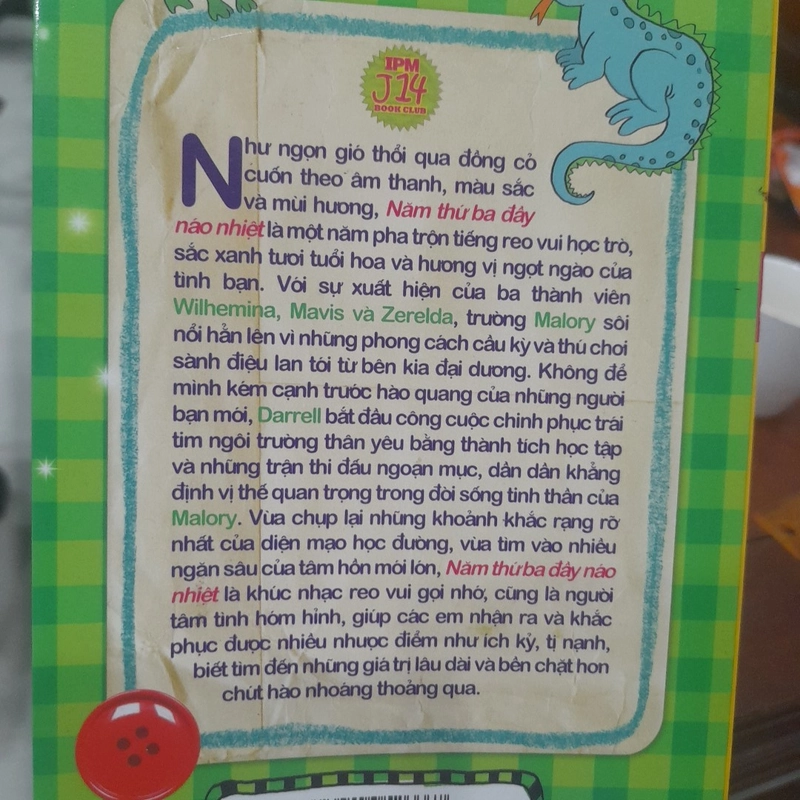 IPM
J14
BOOK CLUB
Như ngọn gió thổi qua đồng cỏ
cuốn theo âm thanh, màu sắc
và mùi hương, Năm thứ ba đầy
náo nhiệt là một năm pha trộn tiếng reo vui học trò,
sắc xanh tươi tuổi hoa và hương vị ngọt ngào của
tình bạn. Với sự xuất hiện của ba thành viên
Wilhemina, Mavis và Zerelda, trường Malory sôi
nổi hẳn lên vì những phong cách cầu kỳ và thú chơi
sành điệu lan tới từ bên kia đại dương. Không để
mình kém cạnh trước hào quang của những người
bạn mới, Darrell bắt đầu công cuộc chinh phục trái
tim ngôi trường thân yêu bằng thành tích học tập
và những trận thi đấu ngoạn mục, dần dần khẳng
định vị thế quan trọng trong đời sống tinh thần của
Malory. Vừa chụp lại những khoảnh khắc rạng rỡ
nhất của diện mạo học đường, vừa tìm vào nhiều
ngăn sâu của tâm hồn mới lớn, Năm thứ ba đầy náo
nhiệt là khúc nhạc reo vui gợi nhớ, cũng là người
tâm tình hóm hỉnh, giúp các em nhận ra và khắc
phục được nhiều nhược điểm như ích kỷ, tị nạnh,
biết tìm đến những giá trị lâu dài và bền chặt hơn
chút hào nhoáng thoảng qua.